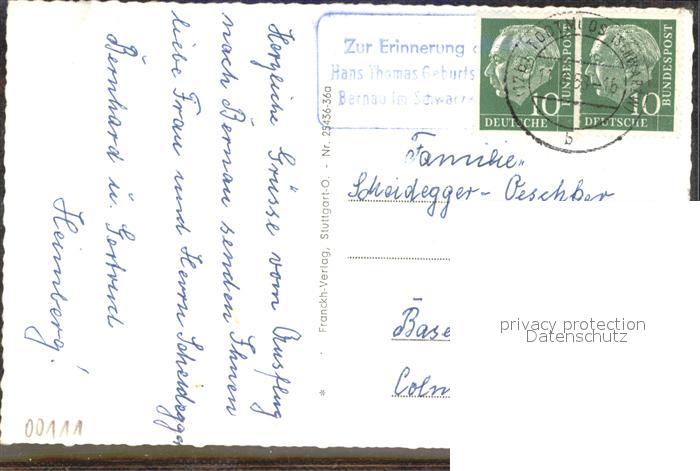 Herzliche Grüsse vom Ausflug
nach Bernau senden Ihnen
liebe Frau und Herrn Scheidegger
Bernhard u. Gertrud
Heimberg!
00111
* Franckh-Verlag, Stuttgart-O. - Nr. 25436-36a
Zur Erinnerung
Hans Thomas Geburts
Bernau im Schwarz
10
DEUTSCHE
BUNDESPOST
10
DEUTSCHE
BUNDESPOST
b
Familie
Scheidegger-Oeschker
Base
Colm
privacy protection
Datenschutz